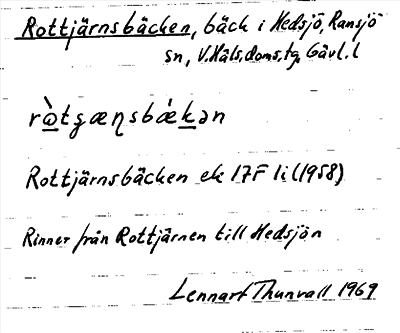 Rottjärnsbäcken, bäck i Hedsjö, Ransjö
sn, V. Häls. doms. tg. Gävl. l
rɷ̀tʒæɳsbǽkən
Rottjärnsbäcken ek 17F 1i (1958)
Rinner från Rottjärnen till Hedsjön
Lennart Thunvall 1969